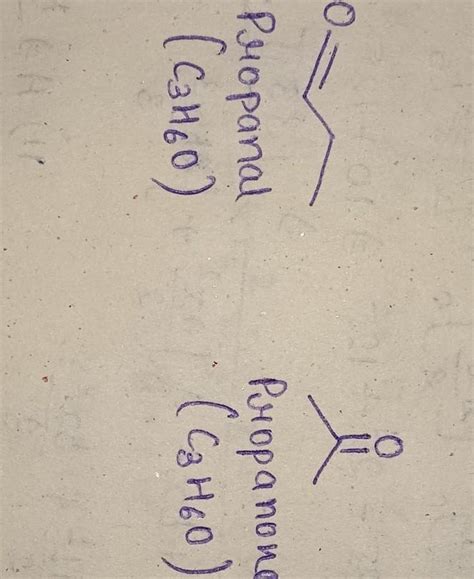 O
Propanal
(C3H6O)
O
Propanone
(C3H6O)